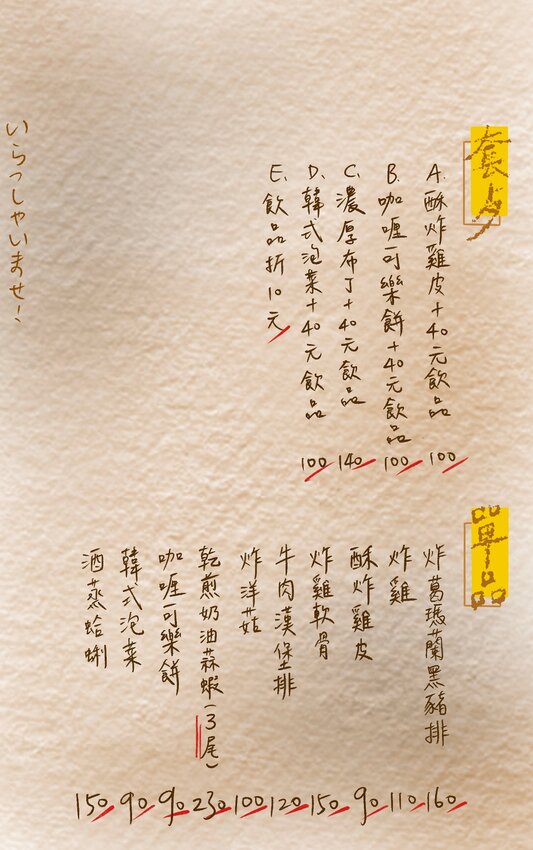 套夕
A.酥炸雞皮+40元飲品 100
B.咖喱可樂餅+40元飲品 100
C.濃厚布丁+40元飲品 140
D.韓式泡菜+40元飲品 100
E.飲品折10元
いらっしゃいませ!
單品
炸葛瑪蘭黑豬排 160
炸雞 110
酥炸雞皮 90
炸雞軟骨 150
牛肉漢堡排 120
炸洋菇 100
乾煎奶油蒜蝦(3尾) 230
咖喱可樂餅 90
韓式泡菜 90
酒蒸蛤蜊 150